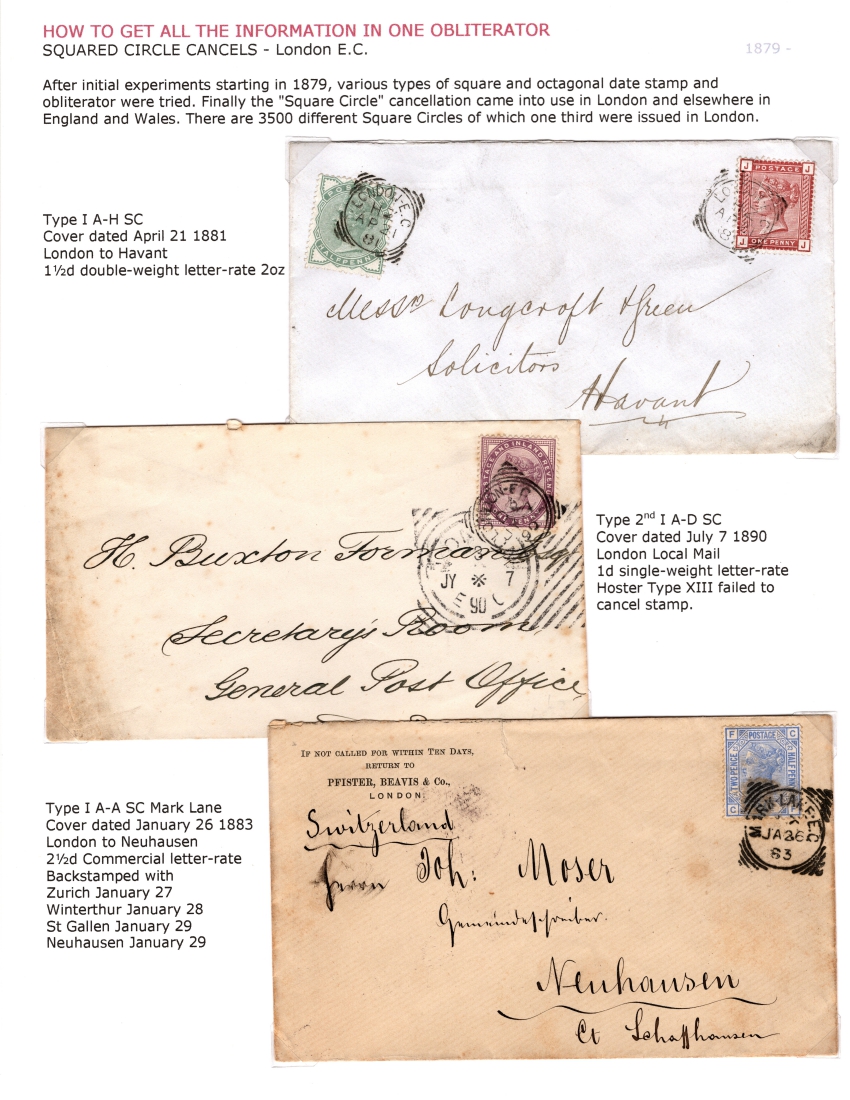 HOW TO GET ALL THE INFORMATION IN ONE OBLITERATOR
SQUARED CIRCLE CANCELS - London E.C.
1879 -
After initial experiments starting in 1879, various types of square and octagonal date stamp and
obliterator were tried. Finally the "Square Circle" cancellation came into use in London and elsewhere in
England and Wales. There are 3500 different Square Circles of which one third were issued in London.
Type I A-H SC
Cover dated April 21 1881
London to Havant
1½d double-weight letter-rate 2oz
LONDON·E.C
AP 21
81
HALFPENNY
J J
POSTAGE
J J
ONE PENNY
Messrs Longcroft & Green
Solicitors
Havant
POSTAGE AND INLAND REVENUE
H. Buxton Forman Esq
JY 7
90
Secretary's Room
General Post Office
Type 2nd I A-D SC
Cover dated July 7 1890
London Local Mail
1d single-weight letter-rate
Hoster Type XIII failed to
cancel stamp.
IF NOT CALLED FOR WITHIN TEN DAYS,
RETURN TO
PFISTER, BEAVIS & Co.,
LONDON
F POSTAGE C
TWO PENCE
HALF PENNY
MARK-LANE·E.C
JA 26
83
Switzerland
Herrn Joh: Moser
Gemeindeschreiber.
Neuhausen
Ct Schaffhausen
Type I A-A SC Mark Lane
Cover dated January 26 1883
London to Neuhausen
2½d Commercial letter-rate
Backstamped with
Zurich January 27
Winterthur January 28
St Gallen January 29
Neuhausen January 29